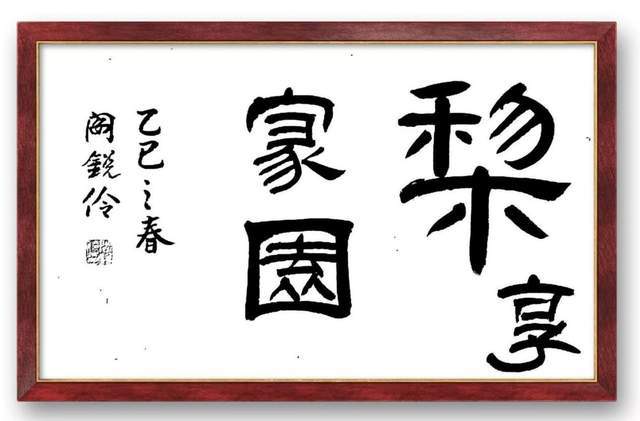 梨享
家園
乙巳之春
阎銳伶